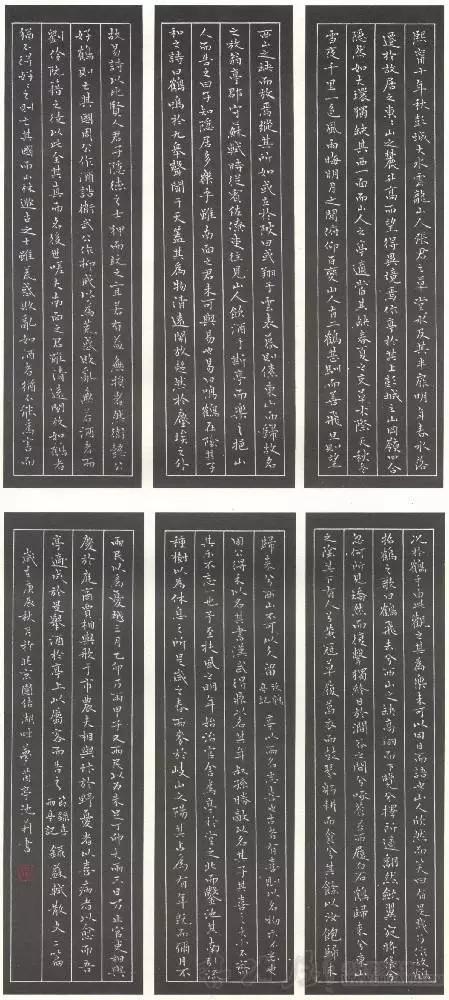 熙甯十年秋彭城大水雲龍山人張君之草堂水及其半扉明年春水落
遷於故居之東東山之麓升高而望得異境焉作亭於其上彭城之山岡嶺四合
隱然如大環獨缺其西一面而山人之亭適當其缺春夏之交草木際天秋冬
雪月千里一色風雨晦明之間俯仰百變山人有二鶴甚馴而善飛旦則望
西山之缺而放焉縱其所如或立於陂田或翔于雲表暮則傃東山而歸故名
之放鶴亭郡守蘇軾時從賓佐僚吏往見山人飲酒于斯亭而樂之挹山
人而告之曰子知隱居之樂乎雖南面之君未可與易也易曰鳴鶴在陰其子
和之詩曰鶴鳴於九皋聲聞于天蓋其為物清遠閒放超然於塵埃之外
故易詩以比賢人君子隱德之士狎而玩之宜若有益無損者然衛懿公
好鶴則亡其國周公作酒誥衛武公作抑戒以為荒惑敗亂無若酒者而
劉伶阮籍之徒以此全其真而名後世嗟夫南面之君雖清遠閒放如鶴者
猶不得好好之則亡其國而山林遯世之士雖荒惑敗亂如酒者猶不能為害而
況於鶴乎由此觀之其為樂未可以同日而語也山人欣然而笑曰有是哉乃作放鶴
招鶴之歌曰鶴飛去兮西山之缺高翔而下覽兮擇所適翻然斂翼宛將集兮
忽何所見矯然而復擊獨終日於澗谷之間兮啄蒼苔而履白石鶴歸來兮東山
之陰其下有人兮黃冠草履葛衣而鼓琴躬耕而食兮其餘以汝飽歸來
歸來兮西山不可以久留 放鶴亭記 亭以雨名志喜也古者有喜則以名物示不忘也
周公得禾以名其書漢武得鼎以名其年叔孫勝敵以名其子其喜之大小不齊
其示不忘一也予至扶風之明年始治官舍為亭於堂之北而鑿池其南引流
種樹以為休息之所是歲之春雨麥於岐山之陽其占為有年既而彌月不
雨民以為憂越三月乙卯乃雨甲子又雨民以為未足丁卯大雨三日乃止官吏相與
慶於庭商賈相與歌于市農夫相與忭於野憂者以喜病者以愈而吾
亭適成於是舉酒於亭上以屬客而告之 節錄喜雨亭記 錄蘇軾散文二篇
歲在庚辰秋月於北京團結湖畔夢苗亭